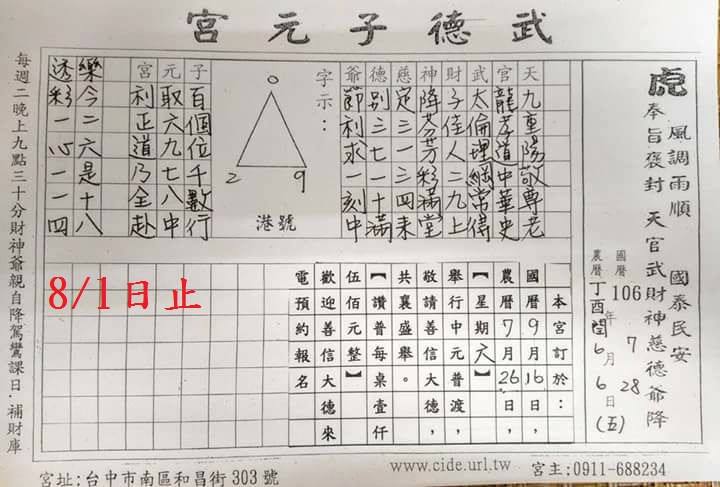 武德子元宮
風調雨順 國泰民安
虎
奉旨褒封 天官武財神慈德爺降
國曆106年7月28日(五)
農曆丁酉閏6月6日
天九重陽敬尊老
官龍孝道中華史
武太倫理綱常得
財子佳人二九上
神降芬芳彩滿堂
慈定三一三四來
德別三七一十滿
爺節利求一刻中
字示:
0
2 9
港號
子百個位千數行
元取六九七八中
宮利正道乃全赴
樂今二六是十八
透彩一心一一四
本宮訂於:
國曆9月16日,
農曆7月26日,
【星期六】
舉行中元普渡,
敬請善信大德,
共襄盛舉。
【讚普每桌壹仟
伍佰元整】
歡迎善信大德來
電預約報名
8/1日止
每週二晚上九點三十分財神爺親自降駕鸞課日‧補財庫
宮址:台中市南區和昌街303號
www.cide.url.tw
宮主:0911-688234